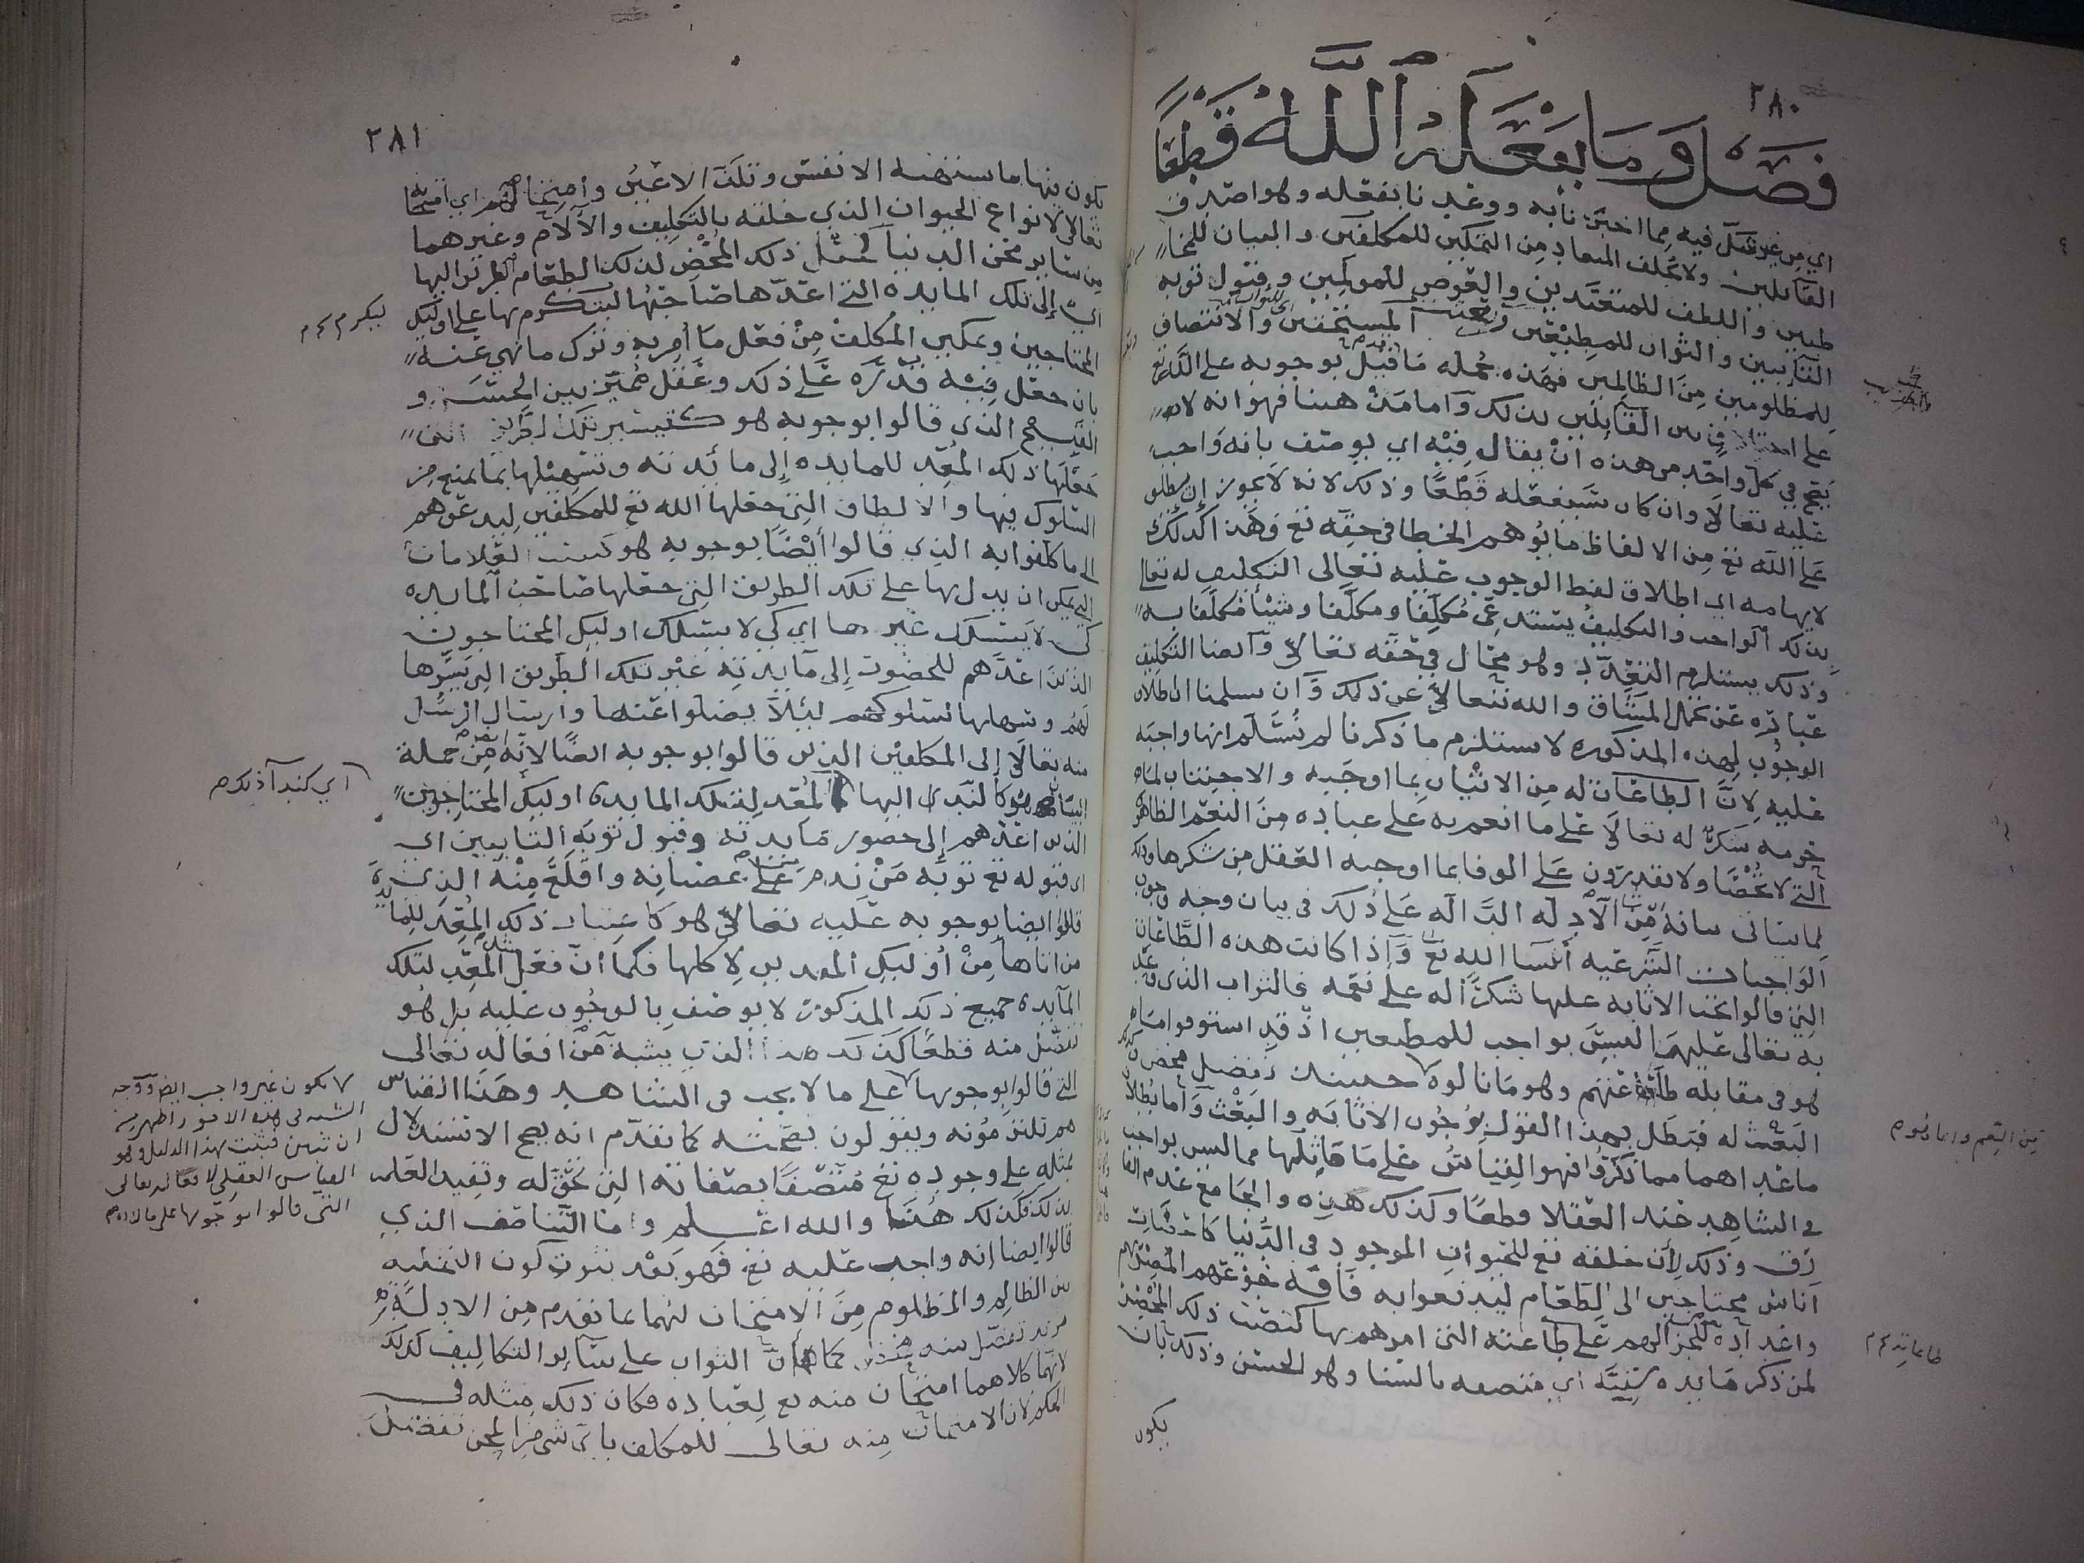 ٢٨٠
فصل وما يفعله الله قطعا
اي من غير شك فيه مما اخبرنا به ووعدنا بفعله وهو اصدق
القائلين ولا يخلف الميعاد من التمكين للمكلفين والبيان للمخا
طبين واللطف للمتعبدين والعوض للمولمين وقبول توبه
التائبين والثواب للمطيعين وبعث المستحقين والانتصاف
للمظلومين من الظالمين فهذه جمله ما قيل بوجوبه على الله تع
على اختلاف بين القائلين بذلك واما مذهبنا فهو انه لا
يصح في كل واحد من هذه ان يقال فيه اي يوصف بانه واجب
عليه تعالى وان كان سيفعله قطعا وذلك لانه لا يجوز ان يطلق
على الله تع من الالفاظ ما يوهم الخطا في حقه تع وهذا كذلك
لايهامه اي اطلاق لفظ الوجوب عليه تعالى التكليف له تعالى
بذلك الواجب والتكليف يستدعي مكلفا ومكلفا وشيا مكلفا به
وذلك يستلزم التعدد وهو محال في حقه تعالى وايضا التكليف
عبارة عن تحمل المشاق والله تعالى عن ذلك وان سلمنا اطلاق
الوجوب لهذه المذكورة لا يستلزم ما ذكرنا لم نسلم انها واجبه
عليه لان الطاعات له من الاتيان بما اوجبه والاجتناب لما
حرمه شكر له تعالى على ما انعم به على عباده من النعم الظاهره
التي لا تحصا ولا يقدرون على الوفا بما اوجبه العقل من شكرها وذلك
لما سياتي بيانه من الادله الداله على ذلك في بيان وجه وجوب
الواجبات الشرعيه ان شا الله تع واذا كانت هذه الطاعات
التي قالوا تجب الاثابه عليها شكرا له على نعمه فالثواب الذي وعد
به تعالى عليها ليس بواجب للمطيعين اذ قد استوفوا
هو في مقابله طاعتهم وهو ما نالوه حينئذ تفضل محض
البعث له فبطل بهذا القول بوجوب الاثابه والبعث واما بطلان
ما عداهما مما ذكروا فهو القياس على ما ماثلها مما ليس بواجب
في الشاهد عند العقلا قطعا وكذلك هذه والجامع عدم الفا
رق وذلك لان خلقه تع للحيوان الموجود في الدنيا كاثبات
اناس محتاجين الى الطعام ليدفعوا به فاقه جوعهم المضر بهم
واعداده للجزا لهم على طاعته التي امرهم بها كنصب ذلك المحضر
لمن ذكر مائده سنيه اي متصفه بالسنا وهو الحسن وذلك بان
يكون
من النعم واما دوم
طاعاته م م
٢٨١
يكون فيها ما ستشتهيه الانفس وتلذ الاعين وامتحانهم اي امتحانه
تعالى لانواع الحيوان الذي خلقه بالتكليف والالام وغيرهما
من سائر محن الدنيا كمثل ذلك المحضر لذلك الطعام الطريق اليها
اي الى تلك المايده التي اعدها صاحبها ليتكرم بها على اوليك
المحتاجين وتمكين المكلف من فعل ما امر به وترك ما نهي عنه
بان جعل فيه قدره على ذلك وعقل مميز بين الحسن و
القبيح الذي قالوا بوجوبه هو كتيسير تلك الطريق التي
جعلها ذلك المعد للمايده الى مائدته وتسهيلها بما يمنع من
السلوك فيها والالطاف التي جعلها الله تع للمكلفين ليدعوهم
الى ما كلفوا به الذي قالوا ايضا بوجوبه هو كنصب العلامات
التي يمكن ان يدل بها على تلك الطريق التي جعلها صاحب المايده
كي لا يسلك غيرها اي كي لا يسلك اوليك المحتاجون
الذين اعدهم للحضور الى مايدته غير تلك الطريق التي يسرها
لهم وسهلها لسلوكهم ليلا يضلوا عنها وارسال الرسل
منه تعالى الى المكلفين الذي قالوا بوجوبه ايضا لانه من جمله
البيان هو كالندا اليها المعد لتلك المايده اوليك المحتاجين
الذين اعدهم الى حضور مايدته وقبول توبه التايبين اي
اي قبوله تع توبه من ندم على عصيانه واقلع منه الذي
قالوا ايضا بوجوبه عليه تعالى هو كاعتبار ذلك المعد للمايده
من اتاها من اوليك المعدين لاكلها فكما ان فعل المعد لتلك
المايده جميع ذلك المذكور لا يوصف بالوجوب عليه بل هو
تفضل منه قطعا كذلك هذا الذي يشبه من افعاله تعالى
التي قالوا بوجوبها على ما لا يجب في الشاهد وهذا القياس
هم يلتزمونه ويقولون بصحته كما تقدم انه يصح الاستدلال
بمثله على وجوده تع متصفا بصفاته التي تحق له وتفيد العلم
بذلك فكذلك هنا والله اعلم واما التناصف الذي
قالوا ايضا انه واجب عليه تع فهو بعد ثبوت كون التخليه
بين الظالم والمظلوم من الامتحان لهما بما تقدم من الادله
مزيد تفضل منه كما ان الثواب على سائر التكاليف كذلك
لانهما كلاهما امتحان منه تع لعباده فكان ذلك مثله في
الحكم لان الامتحان منه تعالى للمكلف باي شي من المحن تفضل
ليكرم م م
اي كندا ذلك م
لا يكون غير واجب ايضا ووجه
الشبه في هذه الامور اظهر من
ان تبين فثبت بهذا الدليل وهو
القياس العقلي لافعاله تعالى
التي قالوا بوجوبها على ما لا